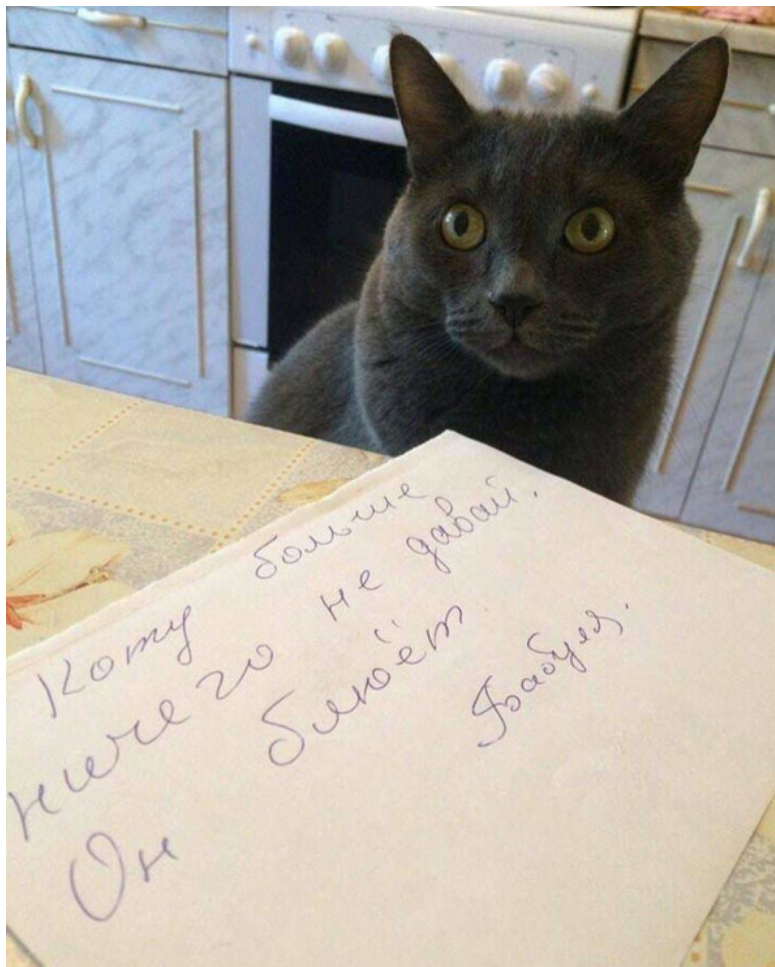 Кому больше
ничего не давай.
Он блюёт.
Бабуля.